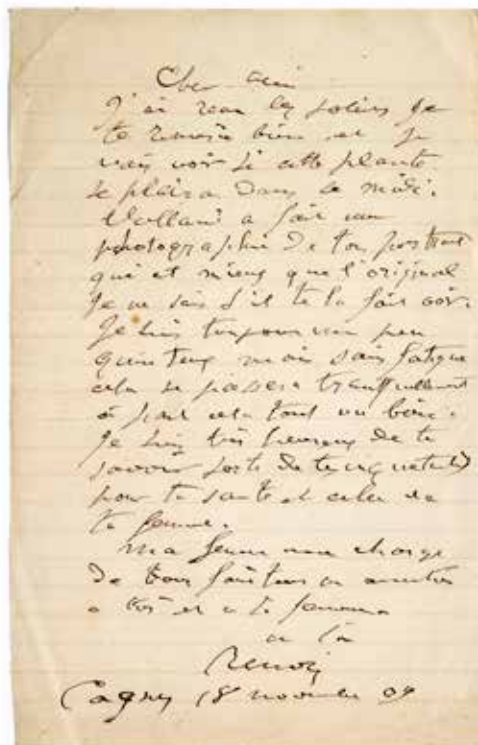 Cher ami
J'ai reçu les soliers je
te remercie bien et je
vais voir si cette plante
se plaira dans le midi.
Vollard a fait une
photographie de ton portrait
qui est mieux que l'original
Je ne sais s'il te l'a fait voir.
Je suis toujours un peu
quinteux mais sans fatigue
cela se passera tranquillement
à part cela tout va bien.
Je suis très heureux de te
savoir sorti de tes inquiétudes
pour ta santé et celle de
ta femme.
Ma femme me charge
de vous
à toi et à ta femme
a toi
Renoir
Cagnes 18 novembre 09